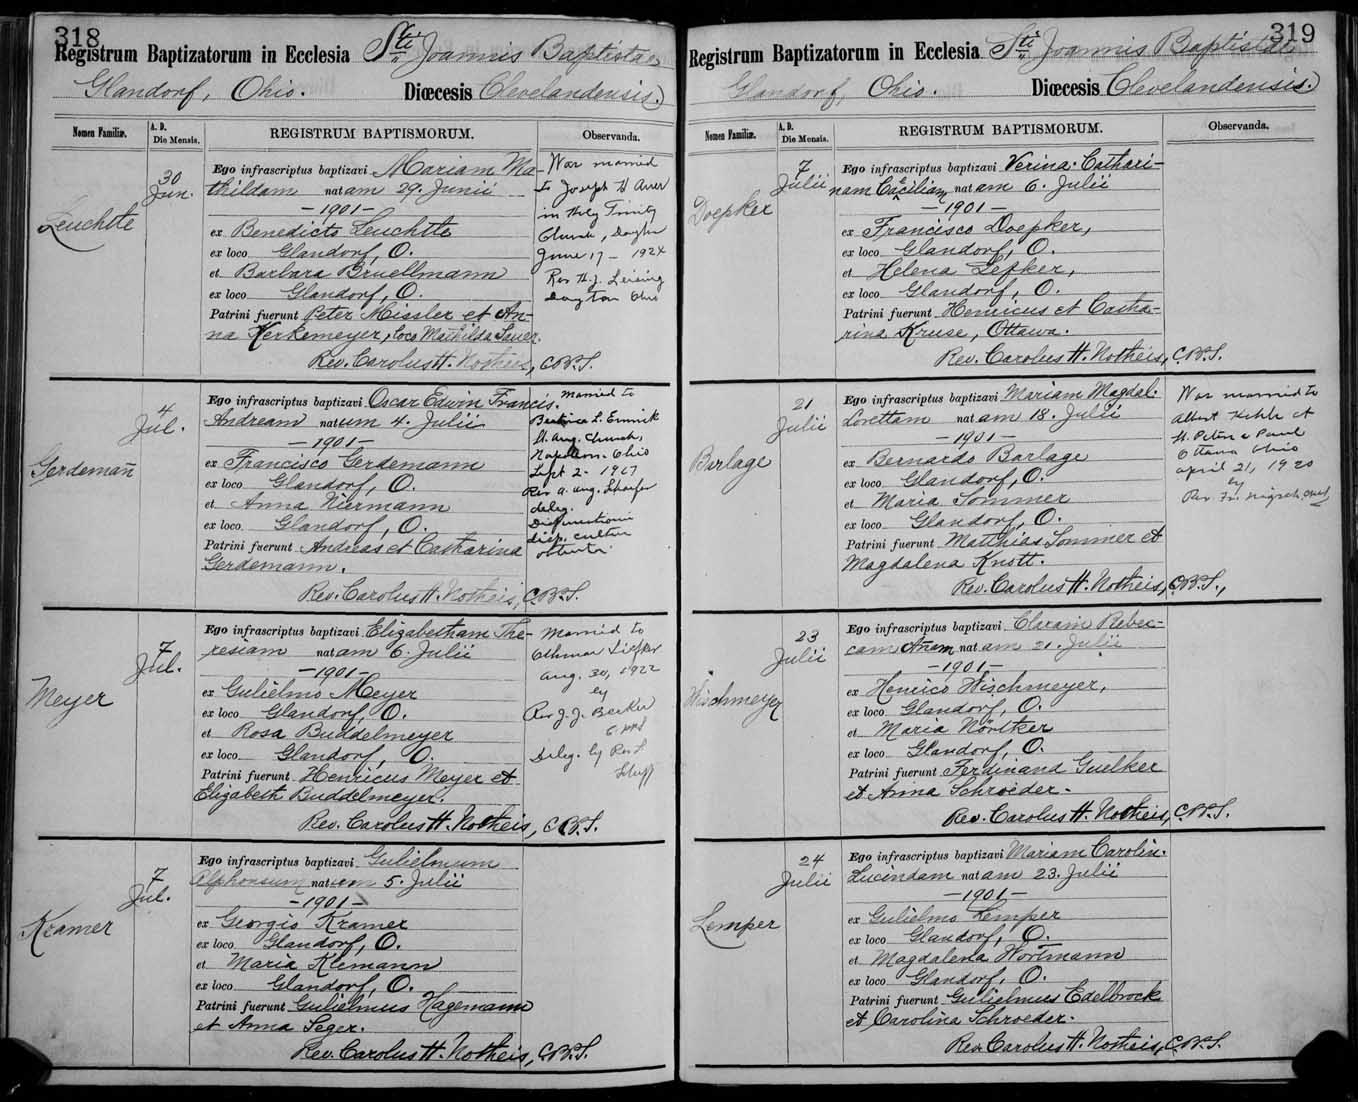 318
Registrum Baptizatorum in Ecclesia Sti Joannis Baptistae
Glandorf, Ohio. Diœcesis Clevelandensis.
Nomen Familiæ.
A. D.
Die Mensis.
REGISTRUM BAPTISMORUM.
Observanda.
Leuchtte
30
Jun.
Ego infrascriptus baptizavi Mariam Ma-
thildam natam 29. Junii
—1901—
ex Benedicto Leuchtte
ex loco Glandorf, O.
et Barbara Bruellmann
ex loco Glandorf, O.
Patrini fuerunt Peter Missler et An-
na Kerkemeyer, loco Mathilda Sauer.
Rev. Carolus H. Notheis, C.PP.S.
Was married
to Joseph H
in Holy Trinity
Church, Dayton
June 17 - 1924
Rev H.J. Leising
Dayton Ohio
Gerdemañ
4
Jul.
Ego infrascriptus baptizavi Oscar Edwin Francis.
Andream natum 4. Julii
—1901—
ex Francisco Gerdemann
ex loco Glandorf, O.
et Anna Niermann
ex loco Glandorf, O.
Patrini fuerunt Andreas et Catharina
Gerdemann.
Rev. Carolus H. Notheis, C.PP.S.
Married to
L.
St. Aug. Church,
Napoleon - Ohio
Sept 2 -
Rev A. Aug.
deleg.
disp. cultus
Meyer
7
Jul.
Ego infrascriptus baptizavi Elizabetham The-
resiam natam 6. Julii
—1901—
ex Gulielmo Meyer
ex loco Glandorf, O.
et Rosa Buddelmeyer
ex loco Glandorf, O.
Patrini fuerunt Henricus Meyer et
Elizabeth Buddelmeyer.
Rev. Carolus H. Notheis, C.PP.S.
Married to
Othmar
Aug. 30, 1922
by
Rev J. J. Becker
C PPS
Deleg. by Rev
Kramer
7
Jul.
Ego infrascriptus baptizavi Gulielmum
Alphonsum natum 5. Julii
—1901—
ex Georgio Kramer
ex loco Glandorf, O.
et Maria Klemann
ex loco Glandorf, O.
Patrini fuerunt Gulielmus Hagemann
et Anna Seger.
Rev. Carolus H. Notheis, C.PP.S.
319
Registrum Baptizatorum in Ecclesia Sti Joannis Baptistae
Glandorf, Ohio. Diœcesis Clevelandensis.
Nomen Familiæ.
A. D.
Die Mensis.
REGISTRUM BAPTISMORUM.
Observanda.
Doepker
7
Julii
Ego infrascriptus baptizavi Verina. Cathari-
nam Cæciliam natam 6. Julii
—1901—
ex Francisco Doepker,
ex loco Glandorf, O.
et Helena Lefker,
ex loco Glandorf, O.
Patrini fuerunt Henricus et Catha-
rina Kruse, Ottawa.
Rev. Carolus H. Notheis, C.PP.S.
Barlage
21
Julii
Ego infrascriptus baptizavi Mariam Magdal.
Lorettam natam 18. Julii
—1901—
ex Bernardo Barlage
ex loco Glandorf, O.
et Maria Sommer
ex loco Glandorf, O.
Patrini fuerunt Matthias Sommer et
Magdalena Knott.
Rev. Carolus H. Notheis, C.PP.S.,
Was married to
Albert at
St. Peter & Paul
Ottawa Ohio
April 21, 1920
by
Rev. Fr.
Wischmeyer
23
Julii
Ego infrascriptus baptizavi Claram Rebec-
cam Añam natam 21. Julii
—1901—
ex Henrico Wischmeyer,
ex loco Glandorf, O.
et Maria Nörtker
ex loco Glandorf, O.
Patrini fuerunt Ferdinand Guelker
et Anna Schroeder.
Rev. Carolus H. Notheis, C.PP.S.
Lemper
24
Julii
Ego infrascriptus baptizavi Mariam Carolin.
Lucindam natam 23. Julii
—1901—
ex Gulielmo Lemper
ex loco Glandorf, O.
et Magdalena Wortmann
ex loco Glandorf, O.
Patrini fuerunt Gulielmus Edelbrock
et Carolina Schroeder.
Rev. Carolus H. Notheis, C.PP.S.